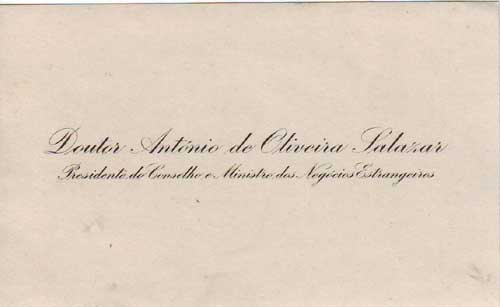 Doutor António de Oliveira Salazar
Presidente do Conselho e Ministro dos Negócios Estrangeiros